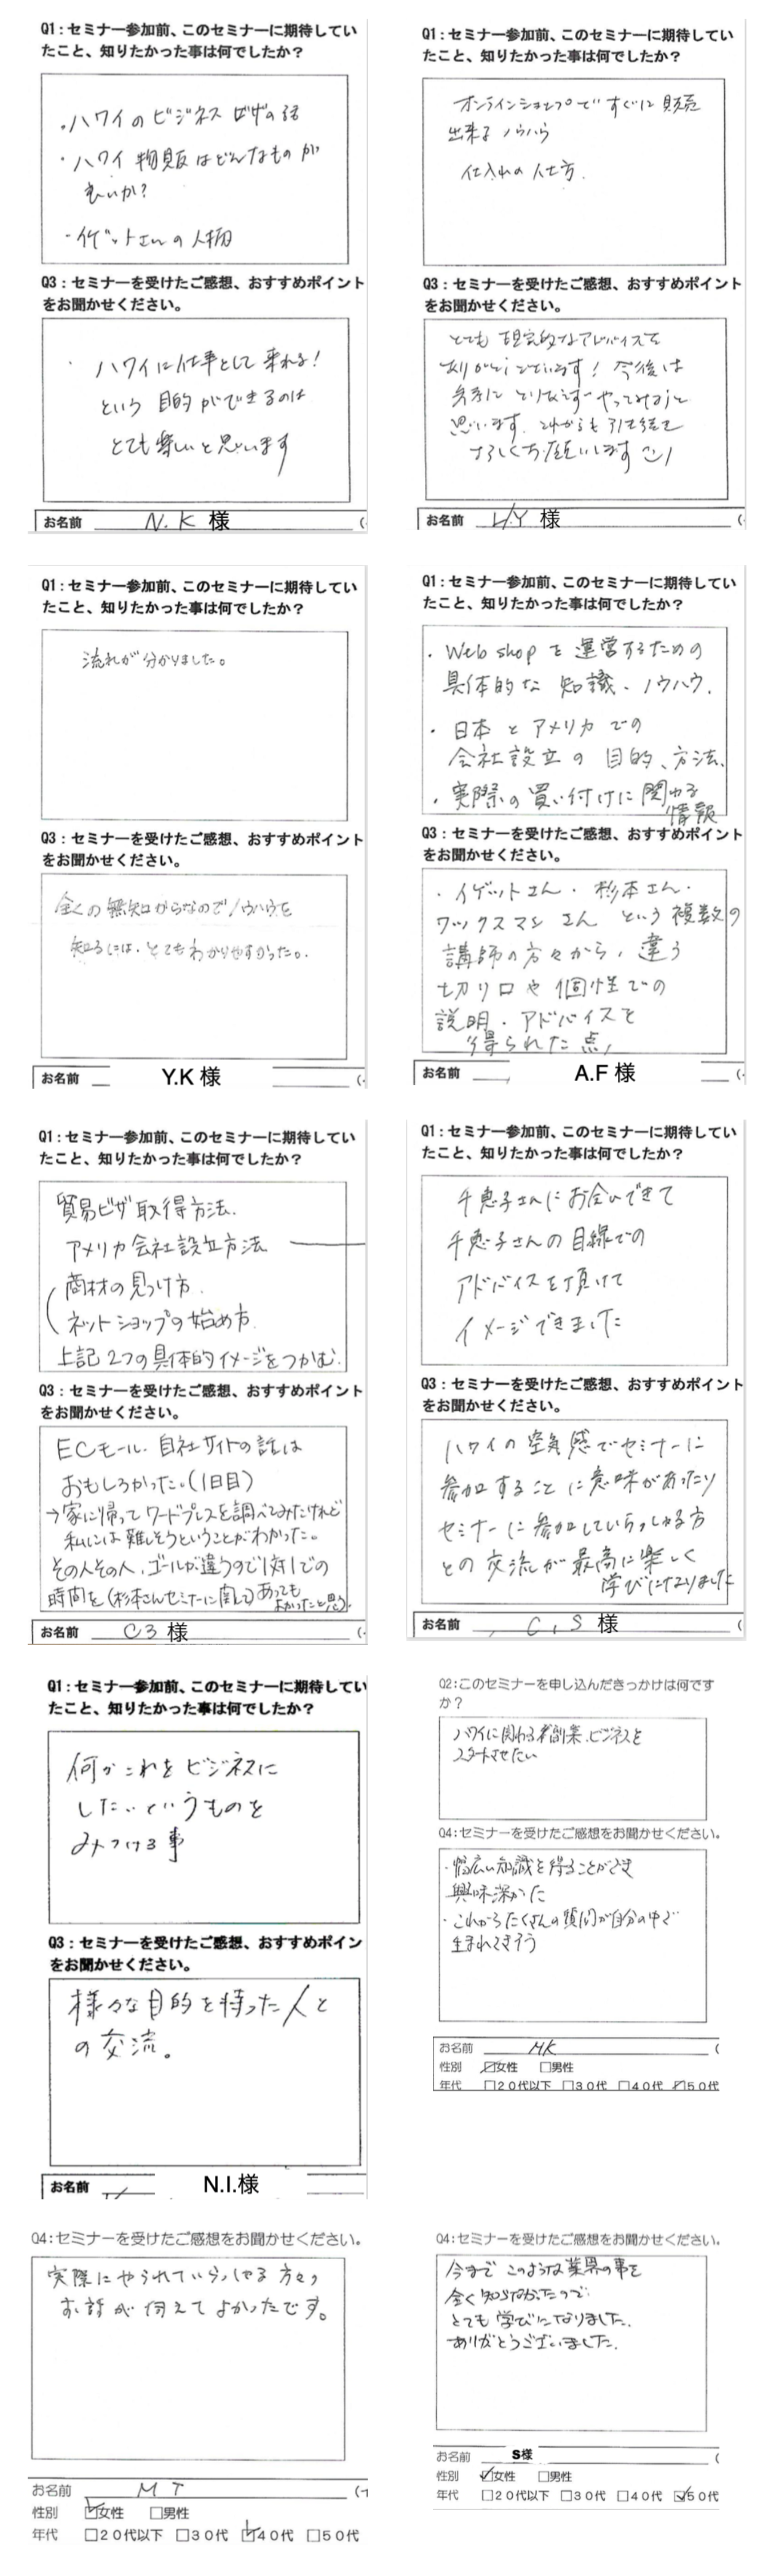 Q1：セミナー参加前、このセミナーに期待してい
たこと、知りたかった事は何でしたか？
・ハワイのビジネスビザの話
・ハワイ物販はどんなものが
良いか？
・イゲットさんの人柄
Q3：セミナーを受けたご感想、おすすめポイント
をお聞かせください。
・ハワイに仕事として来れる！
という目的ができるのは
とても楽しいと思います
お名前 N.K 様
Q1：セミナー参加前、このセミナーに期待してい
たこと、知りたかった事は何でしたか？
オンラインショップですぐに販売
出来るノウハウ
仕入れの仕方.
Q3：セミナーを受けたご感想、おすすめポイント
をお聞かせください。
とても現実的なアドバイスを
ありがとうございます！今後は
とりあえずやってみようと
思います。これからも引き続き
よろしくお願いします
お名前 H.Y 様
Q1：セミナー参加前、このセミナーに期待してい
たこと、知りたかった事は何でしたか？
流れが分かりました。
Q3：セミナーを受けたご感想、おすすめポイント
をお聞かせください。
全くの無知からなのでノウハウを
知るには、とてもわかりやすかった。
お名前 Y.K 様
Q1：セミナー参加前、このセミナーに期待してい
たこと、知りたかった事は何でしたか？
・Web shopを運営するための
具体的な知識、ノウハウ.
・日本とアメリカでの
会社設立の目的、方法.
・実際の買い付けに関わる
情報
Q3：セミナーを受けたご感想、おすすめポイント
をお聞かせください。
・イゲットさん・杉本さん・
ワックスマンさんという複数の
講師の方々から、違う
切り口や個性での
説明・アドバイスを
得られた点
お名前 A.F 様
Q1：セミナー参加前、このセミナーに期待してい
たこと、知りたかった事は何でしたか？
貿易ビザ取得方法.
アメリカ会社設立方法
商材の見つけ方.
ネットショップの始め方
上記2つの具体的イメージをつかむ.
Q3：セミナーを受けたご感想、おすすめポイント
をお聞かせください。
ECモール、自社サイトの話は
おもしろかった。(1日目)
→家に帰ってワードプレスを調べてみたけれど
私には難しそうということがわかった。
その人その人、ゴールが違うので1対1での
時間を(杉本さんセミナーに関して)あっても
よかったと思う.
お名前 C3 様
Q1：セミナー参加前、このセミナーに期待してい
たこと、知りたかった事は何でしたか？
千恵子さんにお会いできて
千恵子さんの目線での
アドバイスを頂けて
イメージできました
Q3：セミナーを受けたご感想、おすすめポイント
をお聞かせください。
ハワイの空気感でセミナーに
参加することに意味があったり
セミナーに参加していらっしゃる方
との交流が最高に楽しく
学びになりました
お名前 C.S 様
Q1：セミナー参加前、このセミナーに期待してい
たこと、知りたかった事は何でしたか？
何かこれをビジネスに
したいというものを
みつける事
Q3：セミナーを受けたご感想、おすすめポイン
をお聞かせください。
様々な目的を持った人と
の交流。
お名前 N.I.様
Q2:このセミナーを申し込んだきっかけは何です
か？
ハワイに関わる副業、ビジネスを
スタートさせたい
Q4:セミナーを受けたご感想をお聞かせください。
・幅広い知識を得ることができ
興味深かた
・これからたくさんの質問が自分の中で
生まれてきそう
お名前 MK
性別 ☑女性 □男性
年代 □20代以下 □30代 □40代 ☑50代
Q4:セミナーを受けたご感想をお聞かせください。
実際にやられていらっしゃる方々の
お話が伺えてよかったです。
お名前 M T
性別 ☑女性 □男性
年代 □20代以下 □30代 ☑40代 □50代
Q4:セミナーを受けたご感想をお聞かせください。
今までこのような業界の事を
全く知らなかったので
とても学びになりました.
ありがとうございました.
お名前 S様
性別 ☑女性 □男性
年代 □20代以下 □30代 □40代 ☑50代